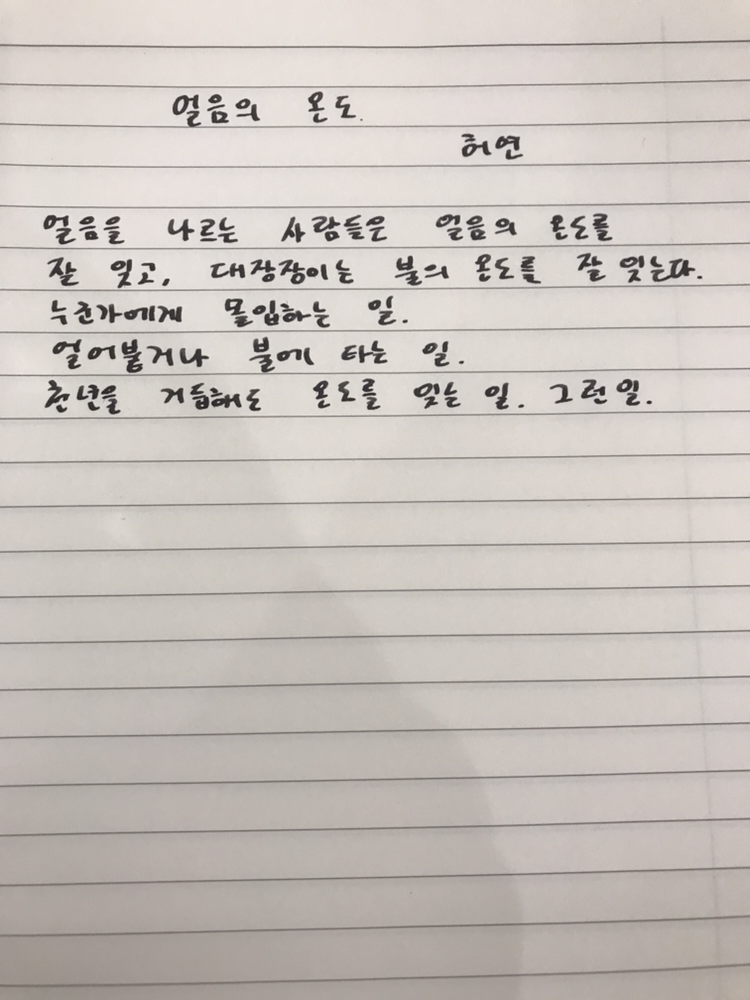 얼음의 온도.
허연
얼음을 나르는 사람들은 얼음의 온도를
잘 잊고, 대장장이는 불의 온도를 잘 잊는다.
누군가에게 몰입하는 일.
얼어붙거나 불에 타는 일.
천년을 거듭해도 온도를 잊는 일. 그런 일.